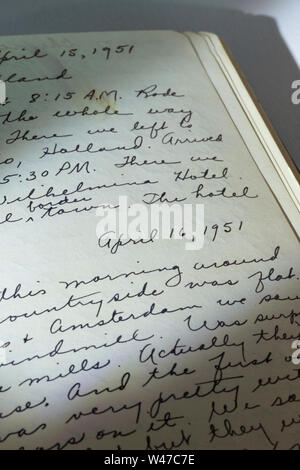 April 15, 1951
lland
t 8:15 A.M. Rode
the whole way
There we left to
o, Holland. Arrived
5:30 P.M. There we
Wilhelmina Hotel.
l border town The hotel
April 16, 1951
this morning around
countryside was flat
& Amsterdam we saw
windmill. Was surp
e mills. Actually they
use. And the first
was very pretty wit
ars on it. We so
but they w
alamy
Image ID: W47C7E
www.alamy.com